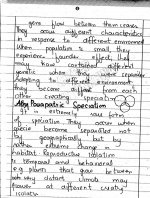 gene flow between them ceases
They occur different characteristics
in response to different environment
When population is small they
experience founder effect, that
may have contained different
genetic when they were separated
Adapting to different environment
they become different from each
other creating speciation
Parapatric Speciation
It is extremely rare form
of speciation. They occur when
species become separated not
by geographically but by
rather extreme change in
habitat. Reproductive isolation
is temporal and behavioral
e.g. plants that gear between
very distort climate may
flower at different
isolation